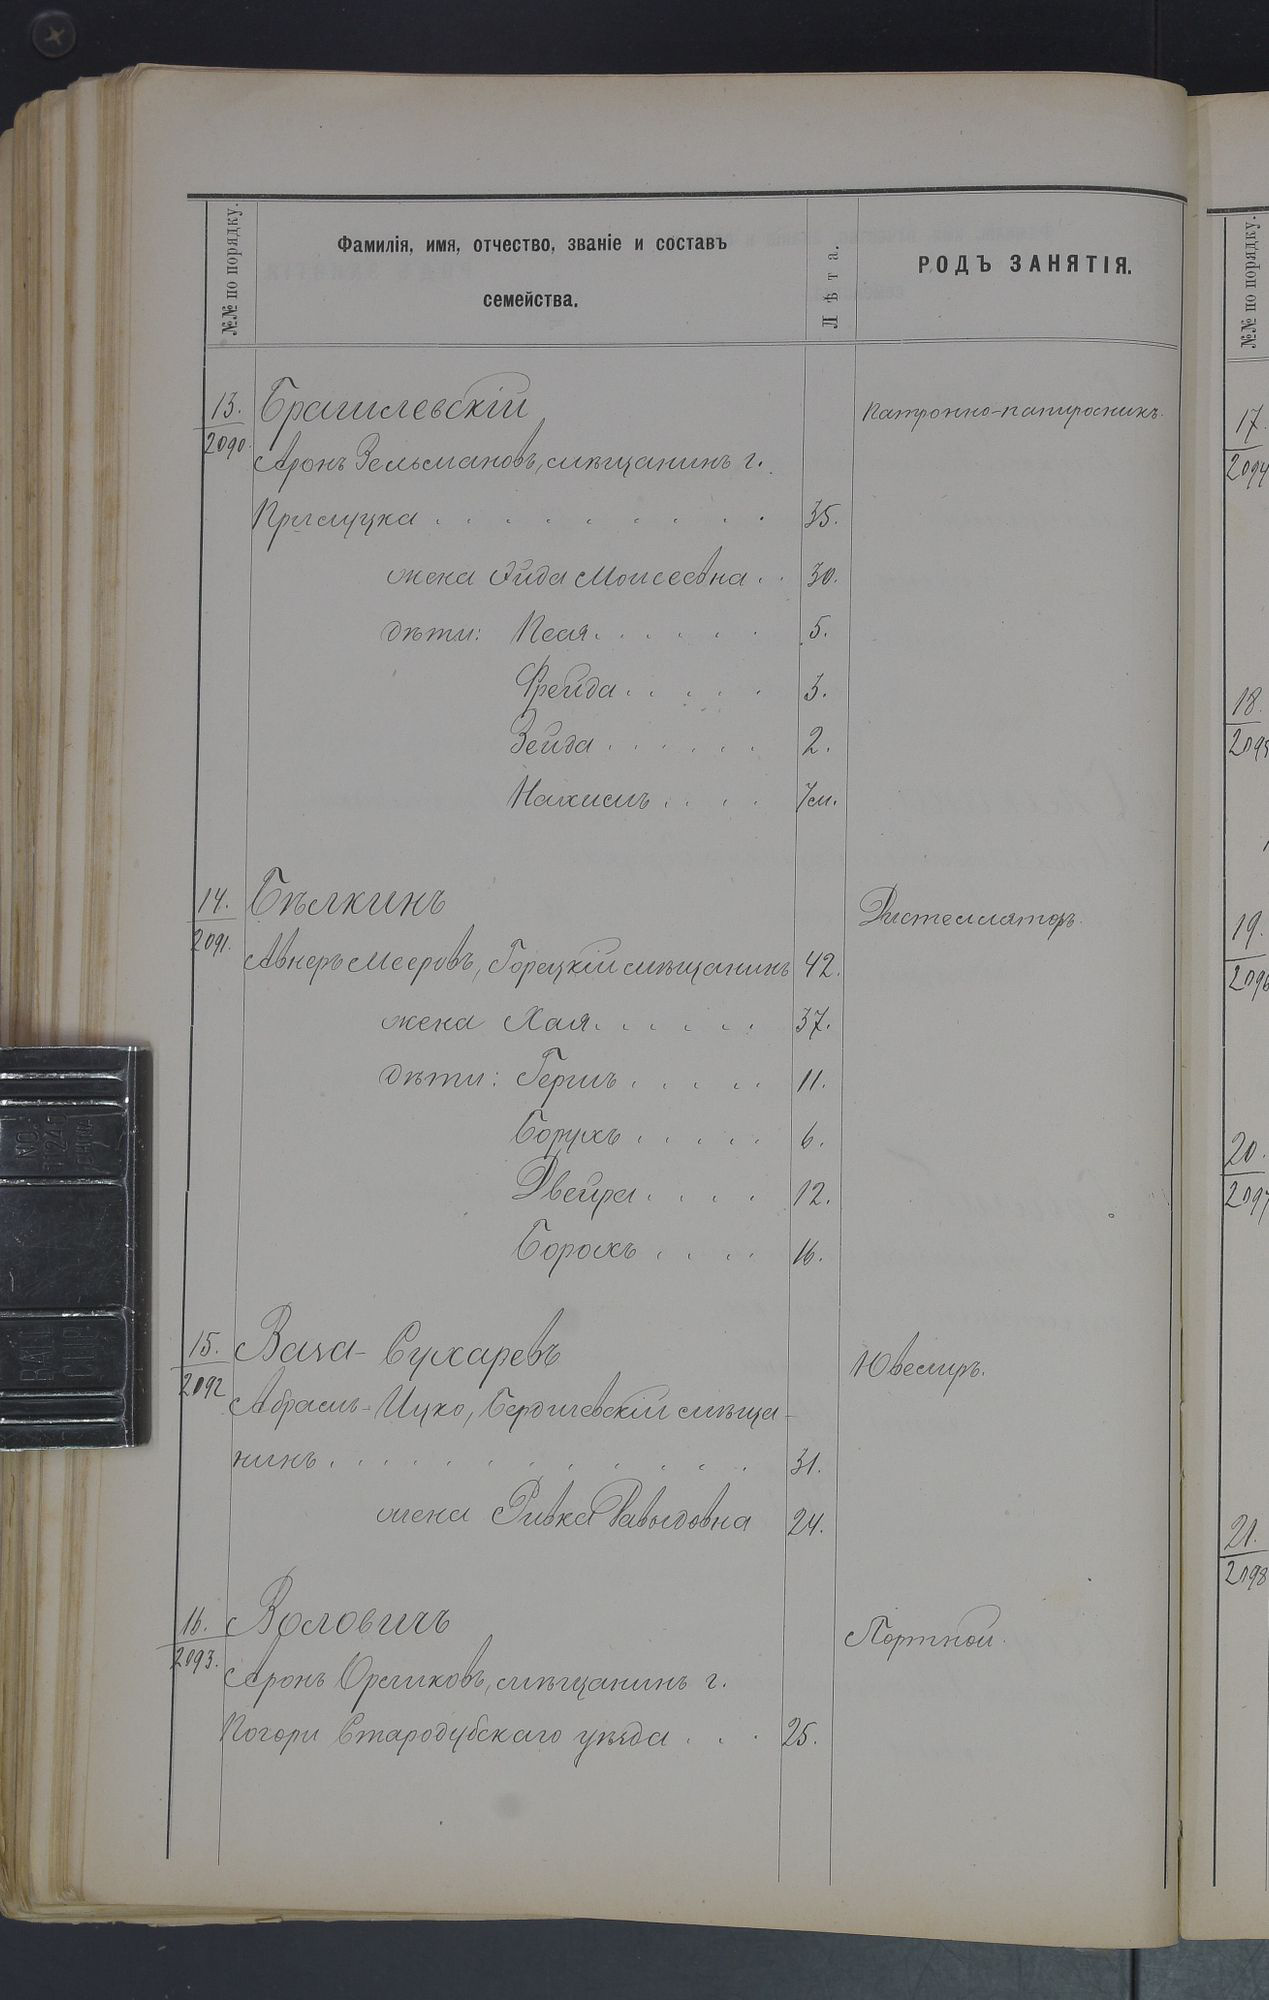 №№ по порядку.
Фамилія, имя, отчество, званіе и составъ
семейства.
Лѣта.
РОДЪ ЗАНЯТІЯ.
№№ по порядку.
13. Брагилевскій Патронно-папиросникъ.
2090.
Аронъ Зельмановъ, мѣщанинъ г.
Прилуцка . . . . . . . . . 35.
жена Эйда Моисеевна . . 30.
дѣти: Песя . . . . . . 5.
Фрейда . . . . . 3.
Зейда . . . . . . 2.
Нахимъ . . . . 7м.
14. Бѣлкинъ Дистелляторъ.
2091.
Авнеръ Мееровъ, Горецкій мѣщанинъ 42.
жена Хая . . . . . . 37.
дѣти: Гершъ . . . . . 11.
Борухъ . . . . . 6.
Двейра . . . . 12.
Борохъ . . . . 16.
15. Вага-Сухаревъ Ювелиръ.
2092
Абрамъ-Ицко, Бердичевскій мѣща-
нинъ . . . . . . . . . . . 31.
жена Ривка Давыдовна 24.
16. Воловичъ Портной.
2093.
Аронъ Орликовъ, мѣщанинъ г.
Погори Стародубскаго уѣзда . . . 25.
17.
2094
18.
2095
19.
2096
20.
2097
21.
2098
NO.
11240
CHINA
BALL
CLIP